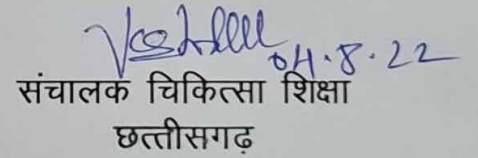 04.8.22
संचालक चिकित्सा शिक्षा
छत्तीसगढ़